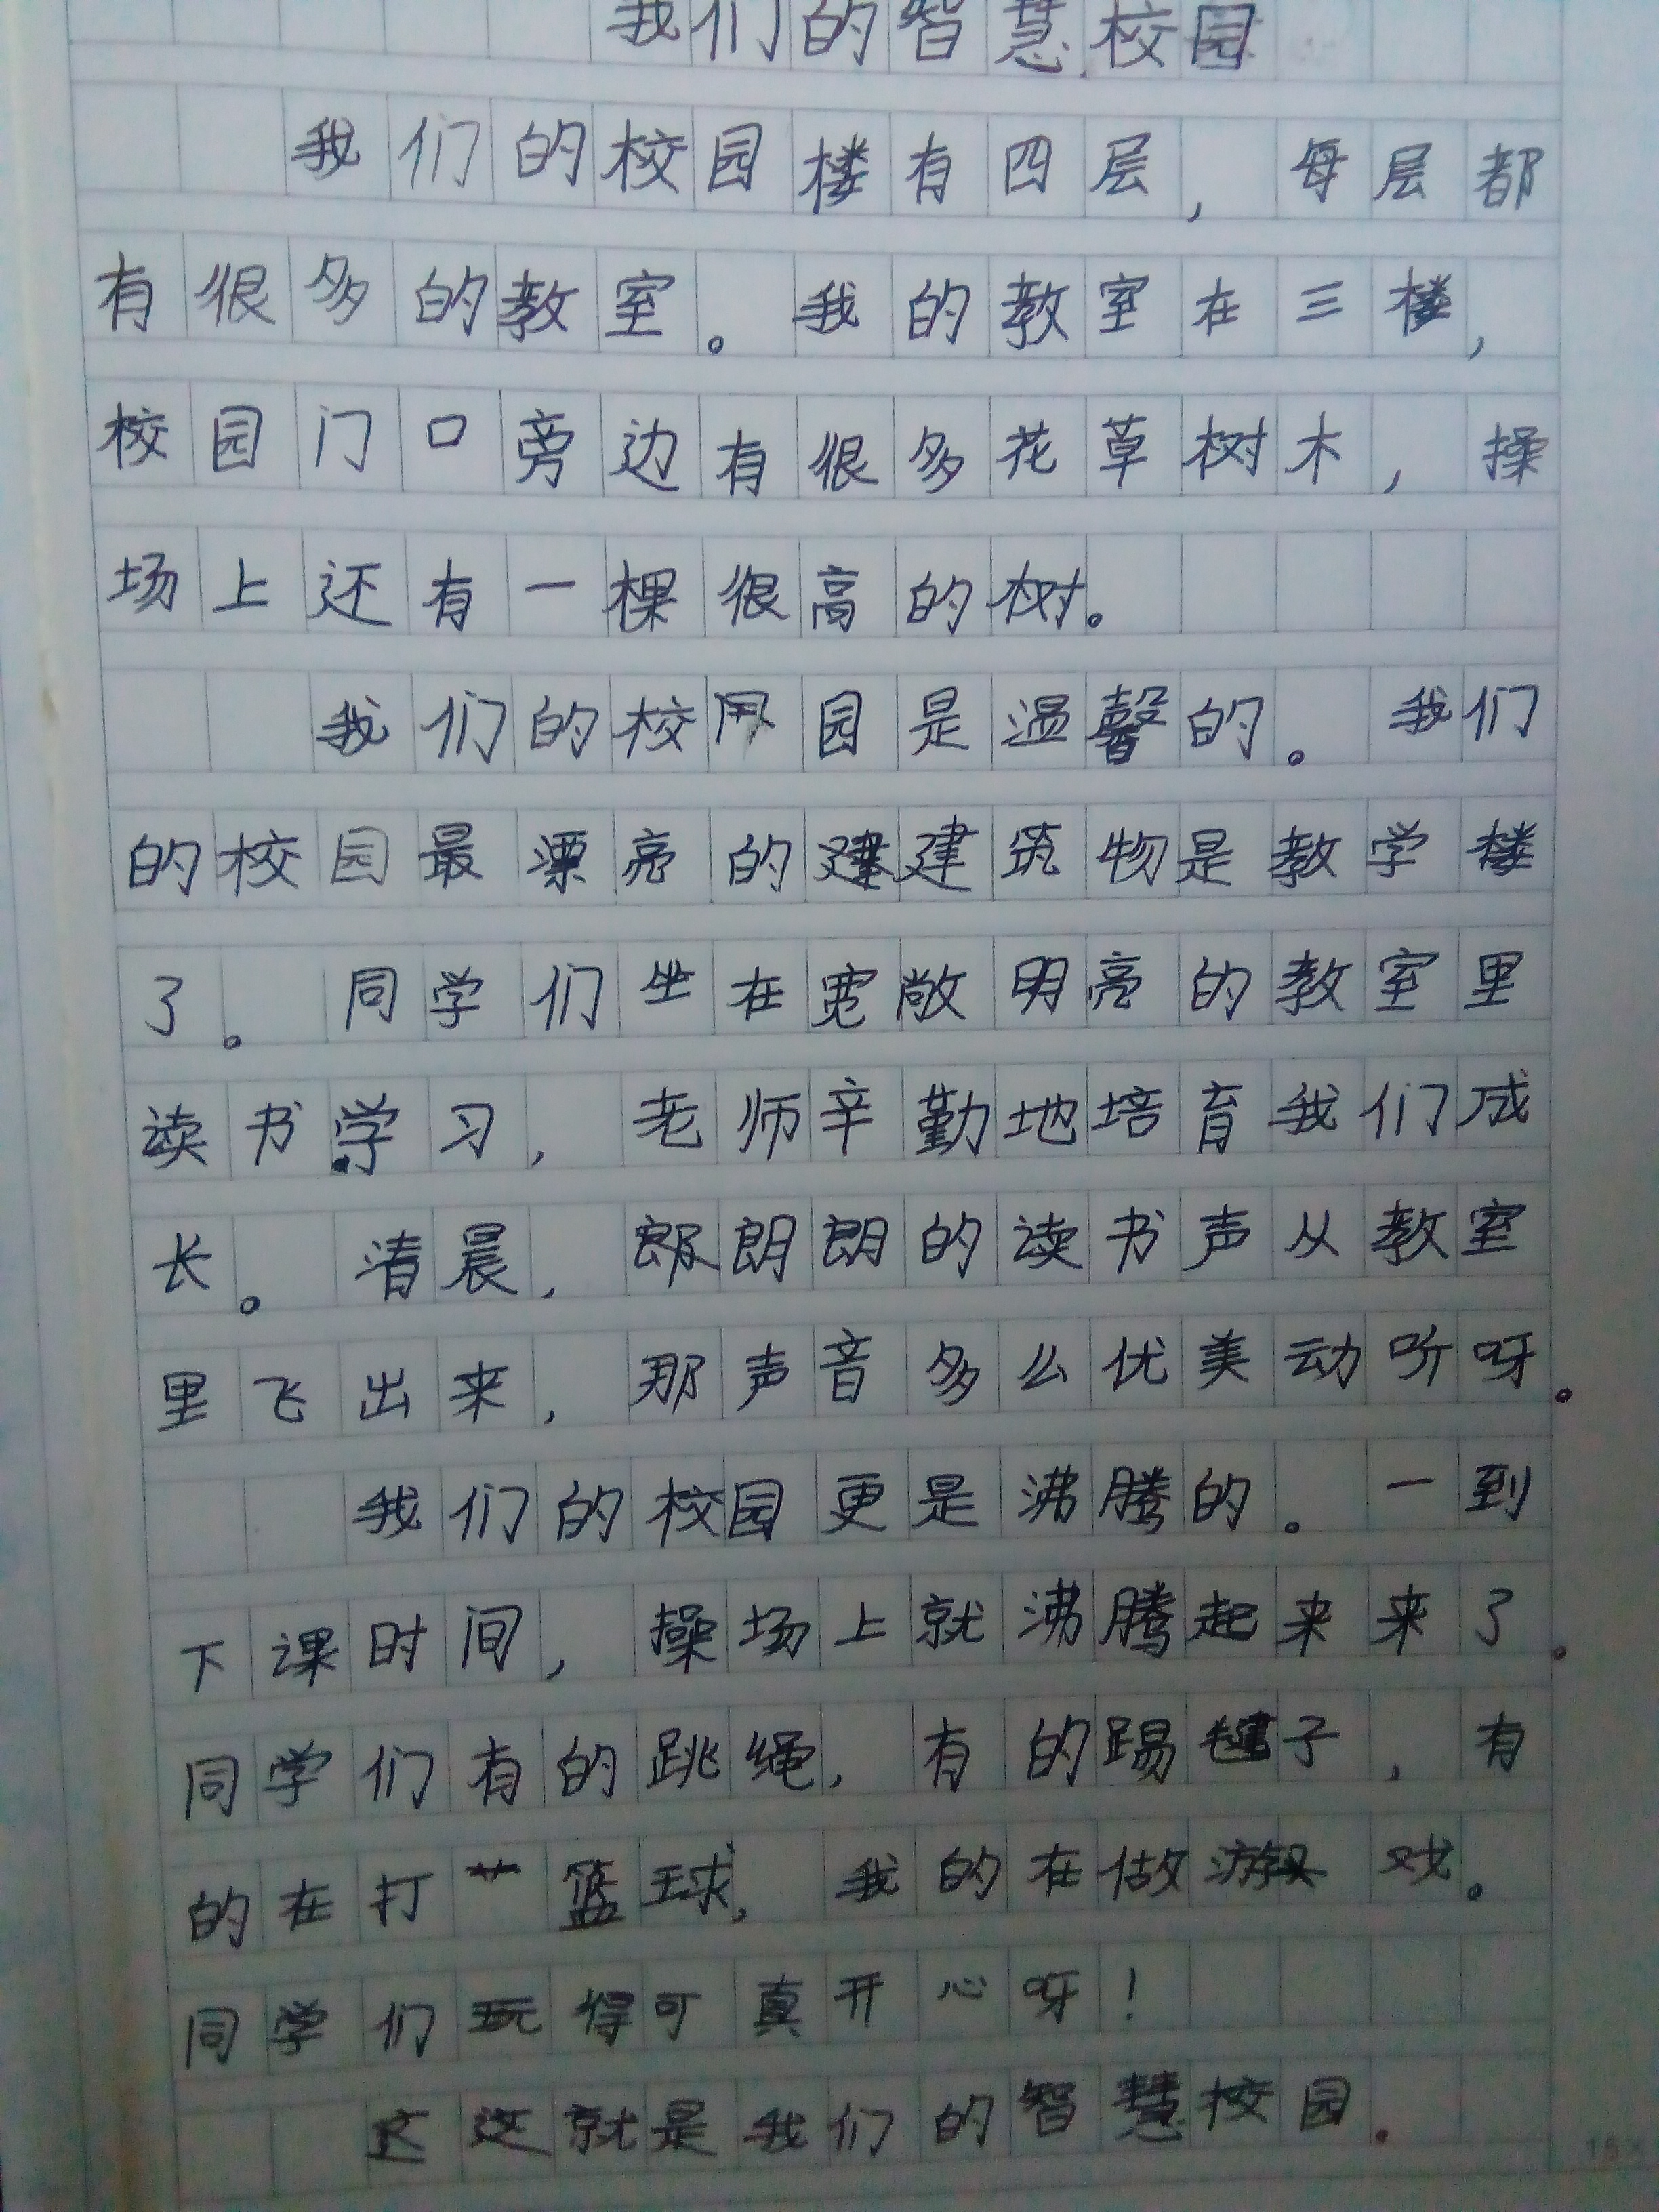 我们的智慧校园
我们的校园楼有四层，每层都
有很多的教室。我的教室在三楼，
校园门口旁边有很多花草树木，操
场上还有一棵很高的树。
我们的校园是温馨的。我们
的校园最漂亮的建筑物是教学楼
了。同学们坐在宽敞明亮的教室里
读书学习，老师辛勤地培育我们成
长。清晨，朗朗的读书声从教室
里飞出来，那声音多么优美动听呀。
我们的校园更是沸腾的。一到
下课时间，操场上就沸腾起来来了。
同学们有的跳绳，有的踢毽子，有
的在打篮球，我的在做游戏。
同学们玩得可真开心呀！
这这就是我们的智慧校园。